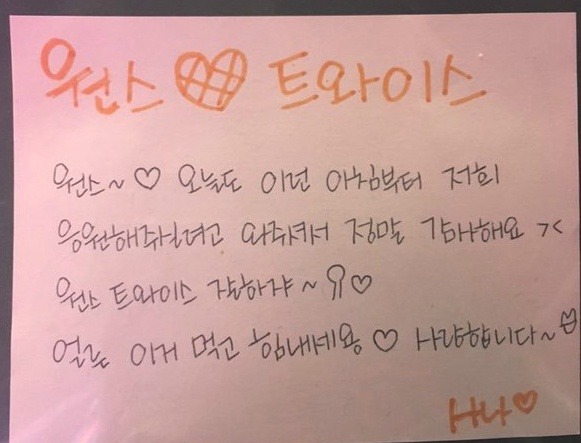 원스 ♡ 트와이스
원스~♡ 오늘도 이런 아침부터 저희
응원해주실려고 와주셔서 정말 감사해요 ><
원스 트와이스 ~♡
얼른 이거 먹고 힘내세용 ♡ 사랑합니다~
사나♡